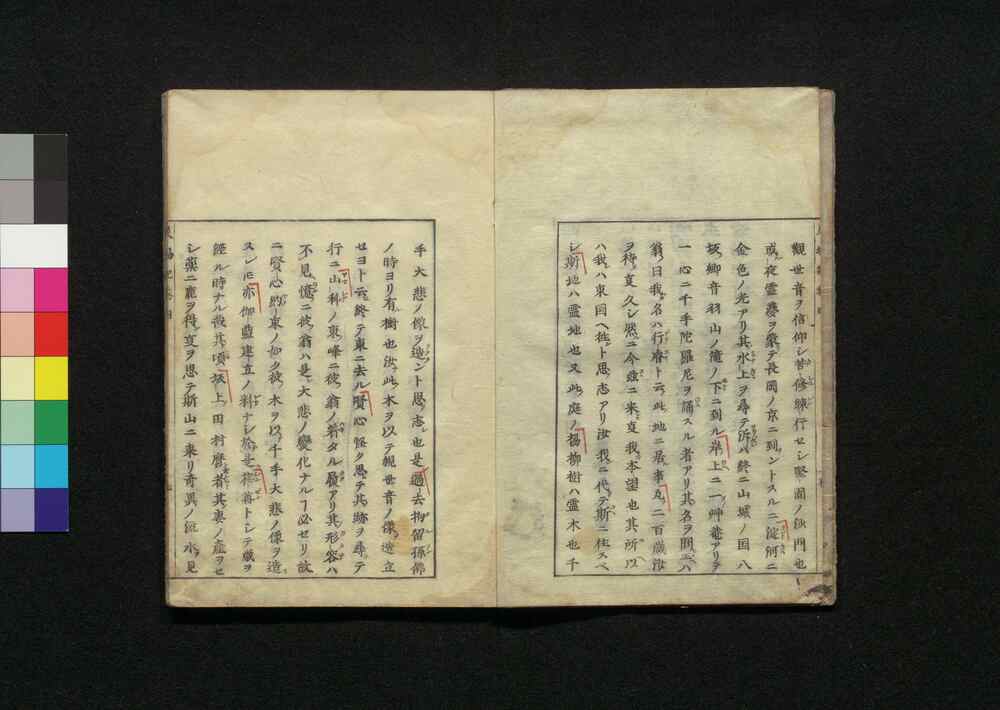 觀世音ヲ信仰シ苦修練行セシ堅固ノ沙門也一
或夜霊夢ヲ蒙テ長岡ノ京ニ到ントスルニ淀河ニ
金色ノ光アリ其水上ヲ尋テ泝ハ終ニ山城ノ国八
坂郷音羽山ノ滝ノ下ニ到ル岸上ニ一艸菴アリテ
一心ニ千手陀羅尼ヲ誦スル者アリ其名ヲ問ハ
翁曰我名ハ行睿ト云此地ニ居事丸二百歳汝
ヲ待事久シ然ニ今玆ニ来事我本望也其所以
ハ我ハ東国ヘ徃ト思志アリ汝我ニ代テ斯ニ住スベ
シ斯地ハ霊地也又此庭ノ楊柳樹ハ霊木也千
手大悲ノ像ヲ造ント思志也是過去拘留孫佛
ノ時ヨリ有樹也汝此木ヲ以テ観世音ノ像造立
セヨト云終テ東ニ去ル賢心怪ク思テ其跡ヲ尋テ
行ニ山科ノ東峰ニ彼翁ノ着タル履アリ其形容ハ
不見憶ニ彼翁ハ是大悲ノ變化ナル丁必セリ故
ニ賢心約束ノ如ク彼木ヲ以千手大悲ノ像ヲ造
スレ𪜈亦伽藍建立ノ料ナシ於是
トシテ歳ヲ
經ル時ナル哉其頃坂上田村麿者其妻ノ産ヲセ
シ薬ニ鹿ヲ得事ヲ思テ斯山ニ来リ奇異ノ
水見